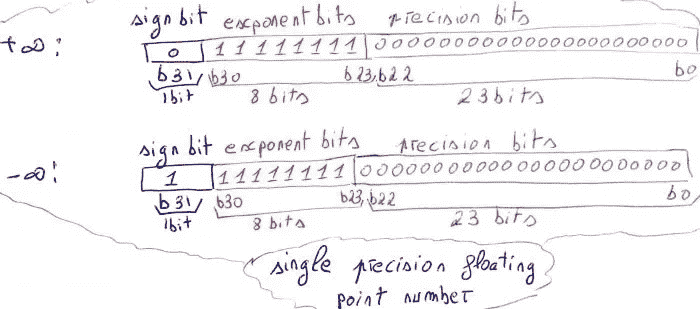 sign bit exponent bits precision bits
+∞: 0 11111111 00000000000000000000000
b31 b30 b23, b22 b0
1bit 8 bits 23bits
sign bit exponent bits precision bits
-∞: 1 11111111 00000000000000000000000
b31 b30 b23, b22 b0
1bit 8 bits 23 bits
single precision floating
point number